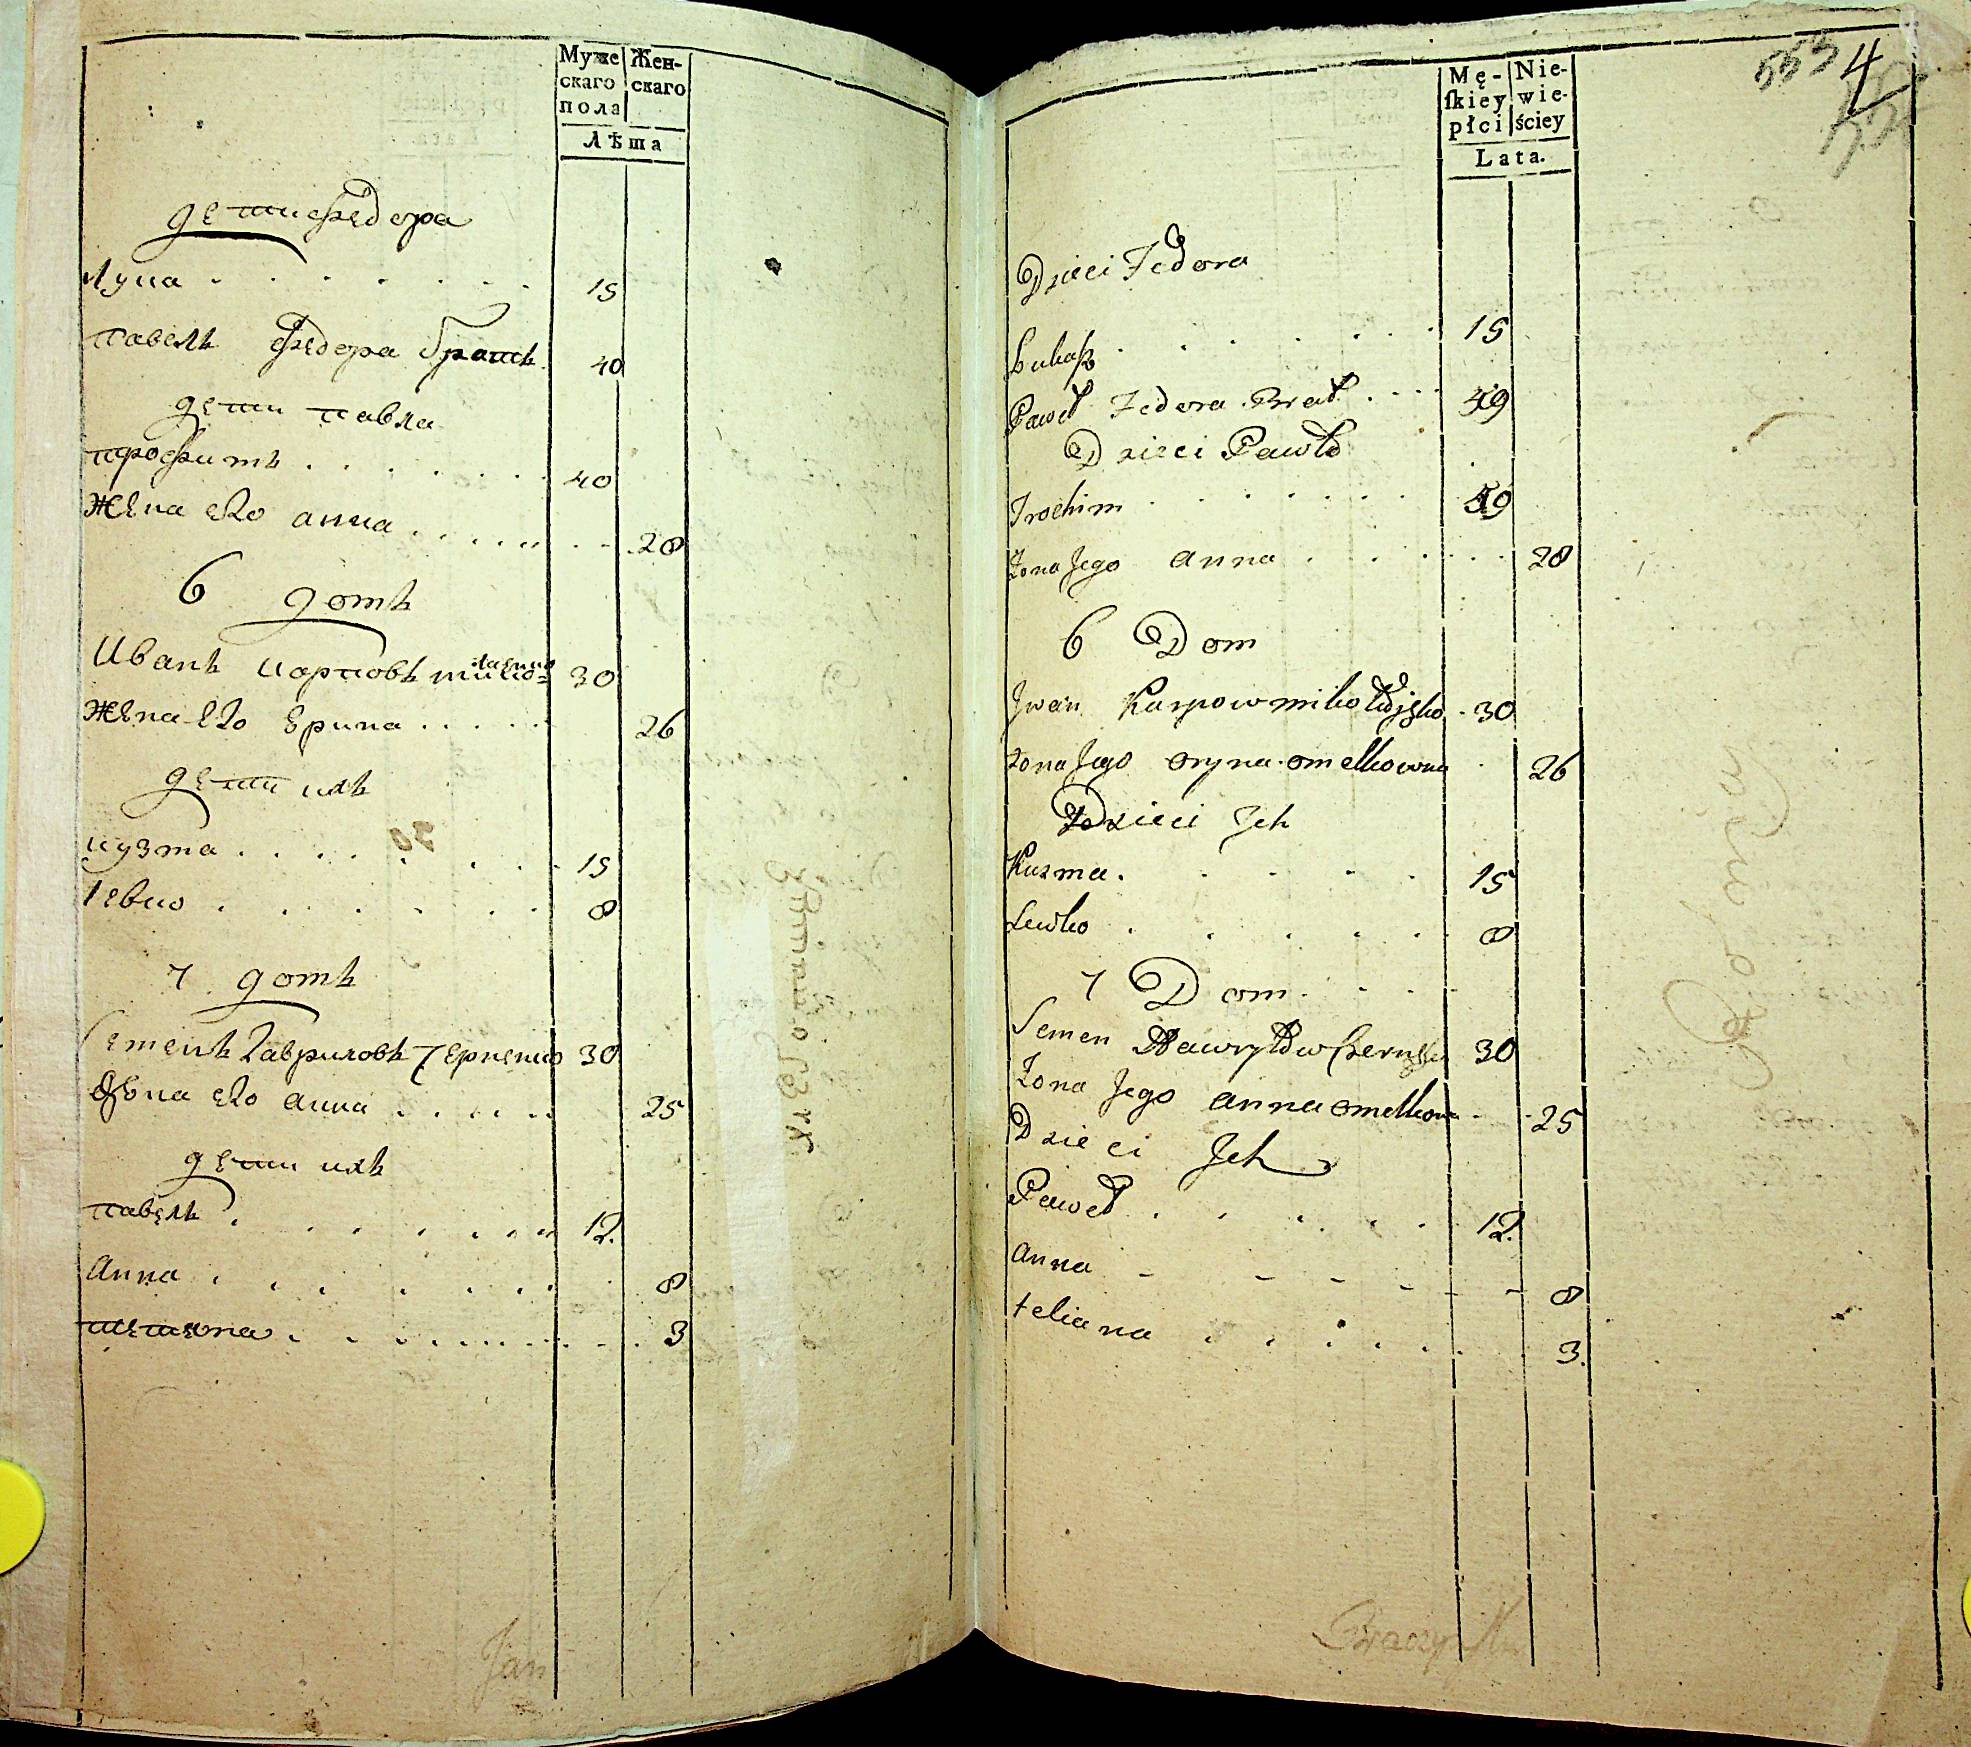 Муже Жен-
скаго скаго
пола
Лѣта
дети федора
Лука . . . . . . 15
павелъ федора братъ 40
дети павла
трофимъ . . . . . . 40
Жена его анна . . . . . . 28
6 домъ
Иванъ карповъ миколаенко 30
Жена его Ерина . . . . . 26
дети ихъ
кузма . . . . . . 15
Левко . . . . . . 8
7 домъ
Семенъ Гавриловъ Черненко 30
Жена его анна . . . . . 25
дети ихъ
павелъ . . . . . . 12.
Анна . . . . . . 8
тетяна . . . . . . 3
Jan
Mę- Nie-
ſkiey wie-
płci ściey
Lata.
553 4
Dzieci Fedora
Łukaſz . . . . . . 15
Paweł Fedora Brat . . . . 49
Dzieci Pawła
Trochim . . . . . . 49
Żona Jego anna . . . . . 28
6 Dom
Jwan Karpow mikołajęko . 30
żona Jego oryna omelkowna . 26
Dzieci Jch
Kuzma . . . . . 15
Lewko . . . . . 8
7 Dom . . . .
Semen Hawryłow Czernęko 30
Żona Jego anna omelkowna . . 25
Dzieci Jch
Paweł . . . . . 12.
anna - - - - - 8
teliana . . . . . . 3.